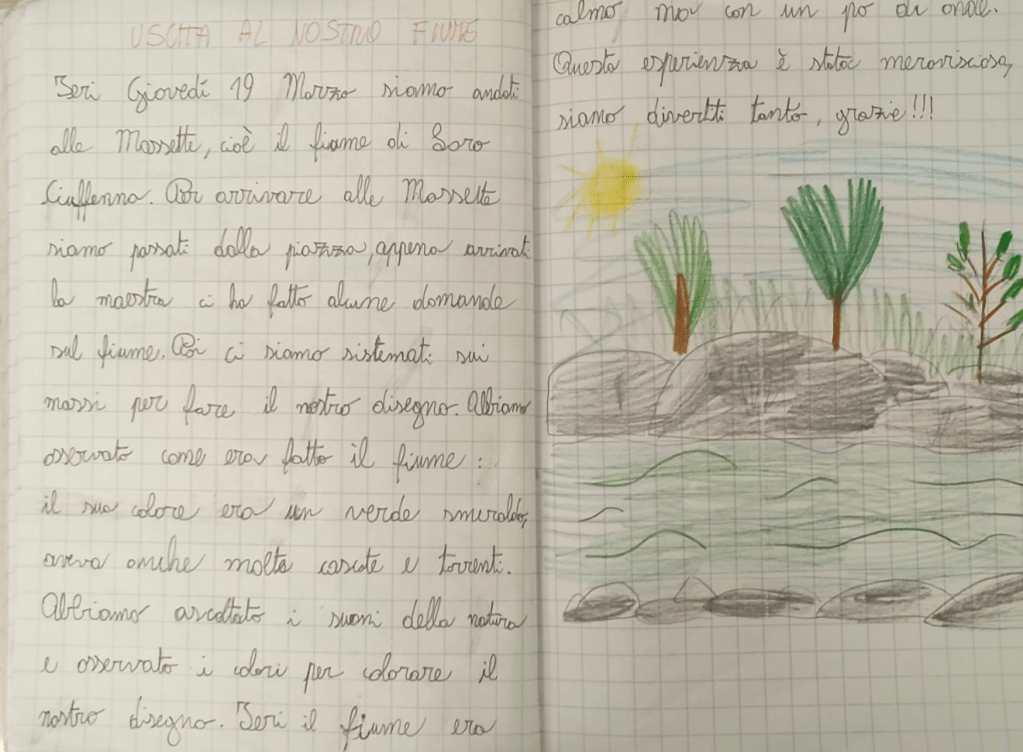 USCITA AL NOSTRO FIUME
Ieri Giovedì 19 Marzo siamo andati
alle Massette, cioè il fiume di Loro
Ciuffenna. Per arrivare alle Massette
siamo passati dalla piazza, appena arrivati
la maestra ci ha fatto alcune domande
sul fiume. Poi ci siamo sistemati sui
massi per fare il nostro disegno. Abbiamo
osservato come era fatto il fiume:
il suo colore era un verde smeraldo,
aveva anche molte cascate e torrenti.
Abbiamo ascoltato i suoni della natura
e osservato i colori per colorare il
nostro disegno. Ieri il fiume era
calmo ma con un po di onde.
Questa esperienza è stata meravigliosa,
siamo divertiti tanto, grazie!!!